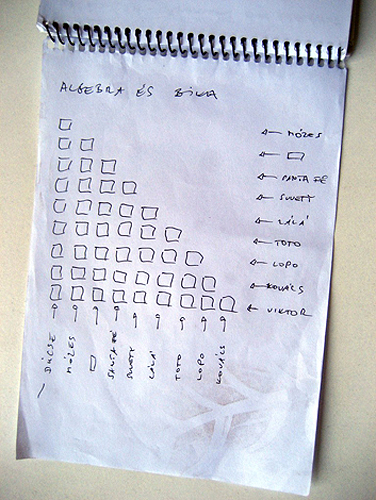 ALGEBRA ÉS BIKA
← MÓZES
← □
← SANTA FÉ
← SWETY
← LÁLÁ
← TOTO
← LOPO
← KOVÁCS
← VIKTOR
DÖCSE
MÓZES
□
SANTA FÉ
SWETY
LÁLÁ
TOTO
LOPO
KOVÁCS